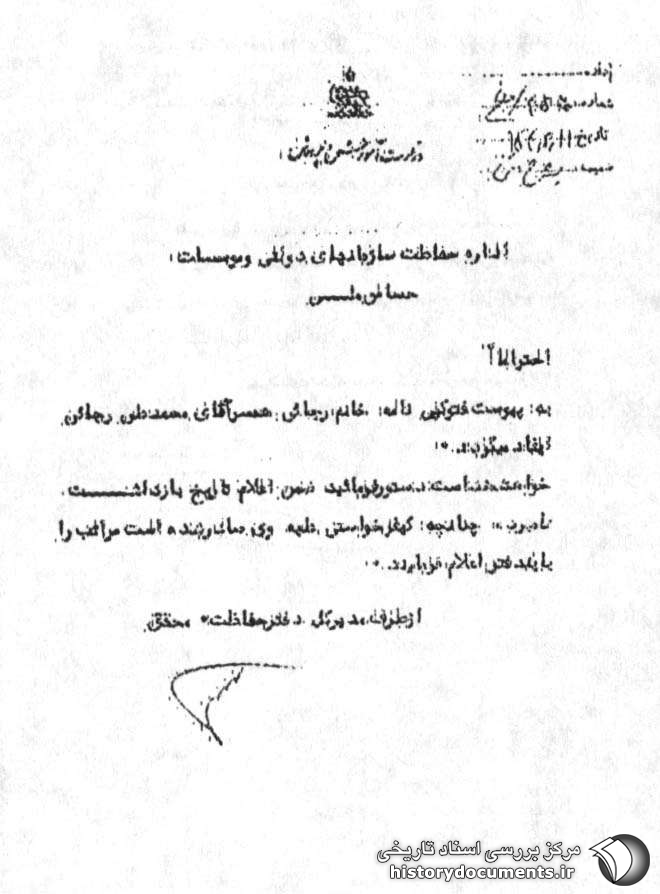 اداره
شماره
تاریخ
ضمیمه
وزارت آموزش و پرورش
اداره حفاظت سازمانهای دولتی و موسسات
احتراما"
به پیوست فتوکپی نامه خانم رجائی همسر آقای محمدعلی رجائی
ایفاد میگردد.
خواهشمند است دستور فرمائید ضمن اعلام تاریخ بازداشت
نامبرده چنانچه کیفرخواستی علیه وی صادر شده است مراتب را
باین دفتر اعلام فرمایند.
از طرف مدیرکل دفتر حفاظت محققی
مرکز بررسی اسناد تاریخی
historydocuments.ir